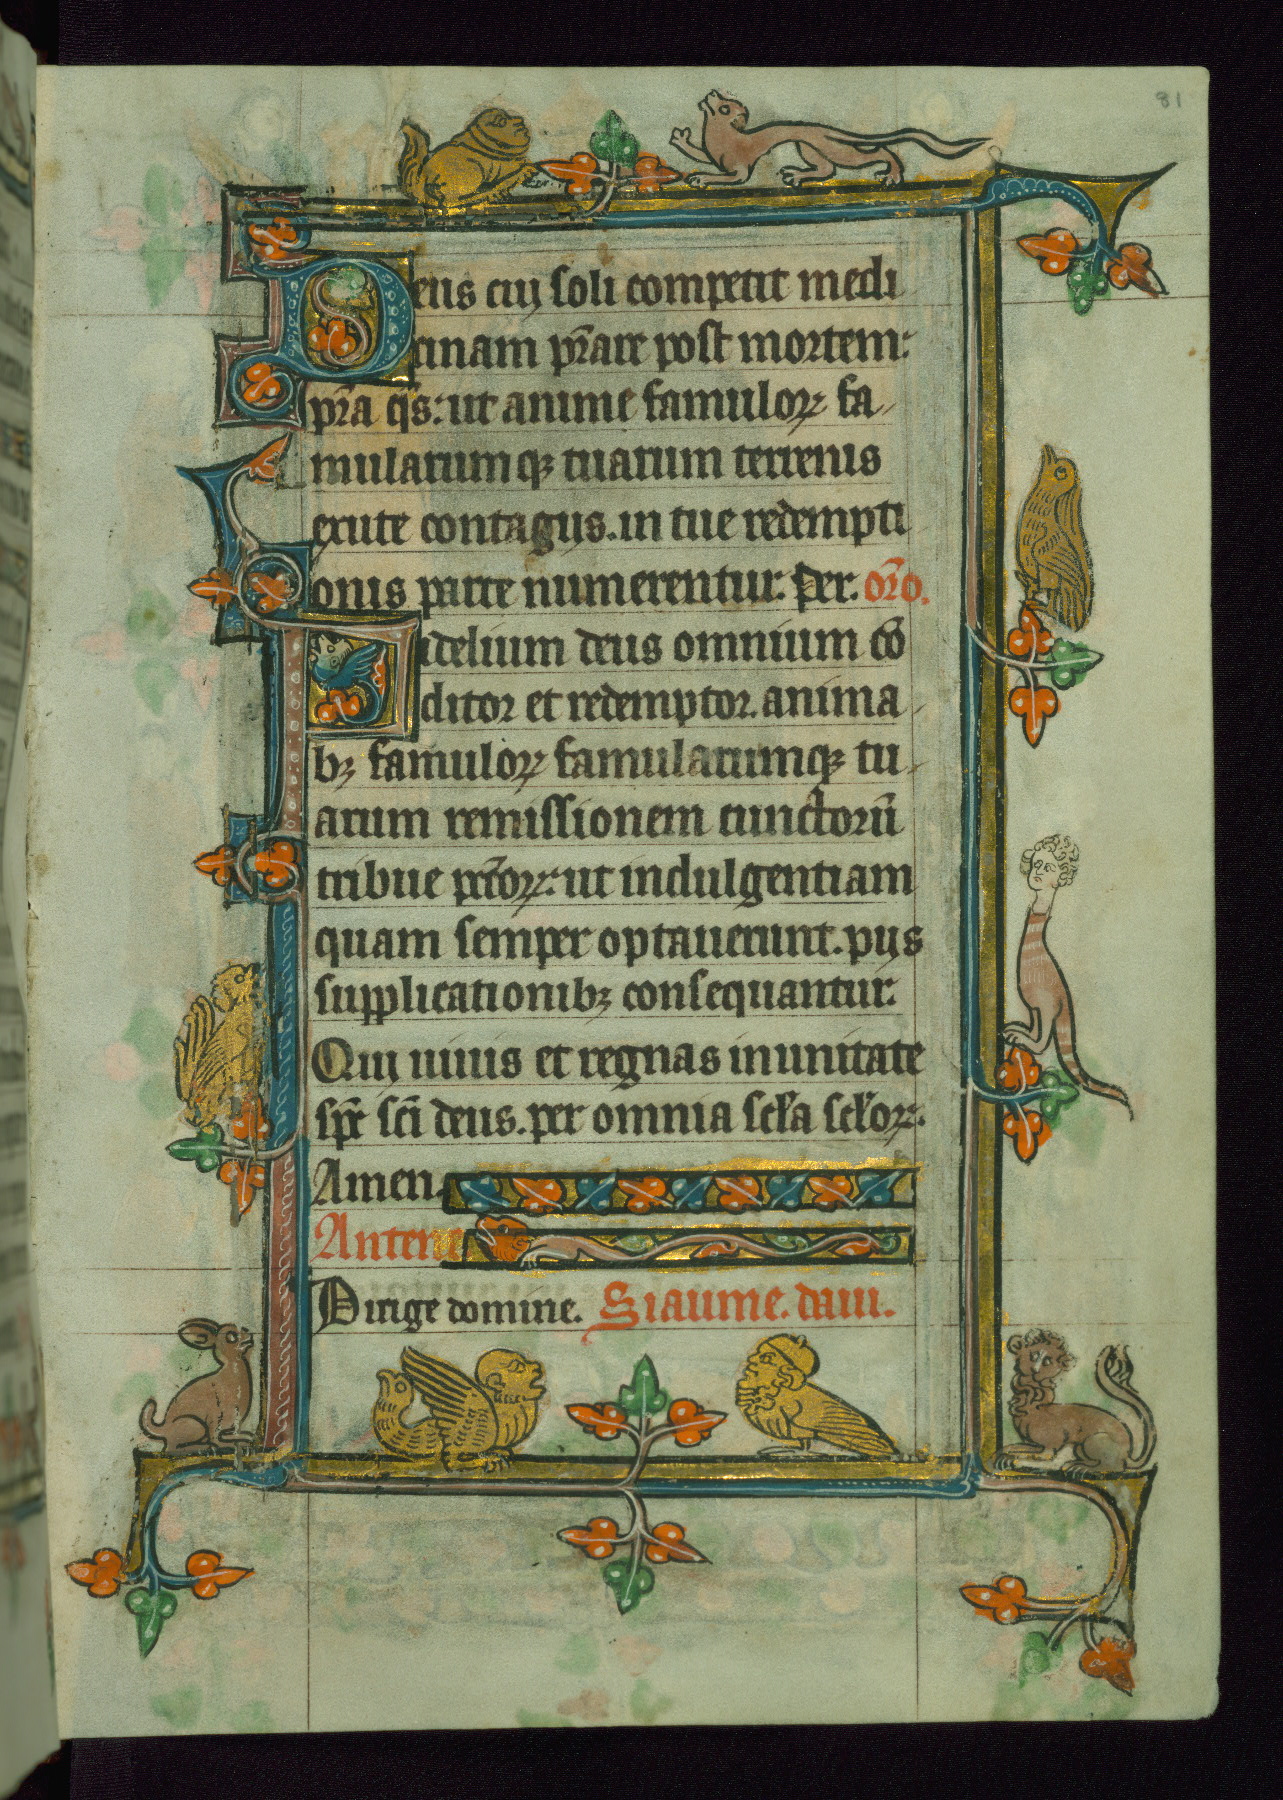 81
Deus cui soli competit medi
cinam p̄rare post mortem:
p̄ra q̄s: ut anime famuloꝝ fa
mularumqꝫ tuarum terrenis
exute contagiis. in tue redempti
onis parte numerentur. per. or̄o.
Fidelium deus omnium cō
ditor et redemptor. anima
bꝫ famuloꝝ famularumqꝫ tu
arum remissionem cunctorū
tribue pc̄c̄oꝝ: ut indulgentiam
quam semper optauerunt. piis
supplicationibꝫ consequantur.
Qui uiuis et regnas in unitate
sp̄c sc̄i deus. per omnia sc̄l̄a sc̄l̄oꝝ.
Amen.
Antena
Dirige domine. Siaume. daui.